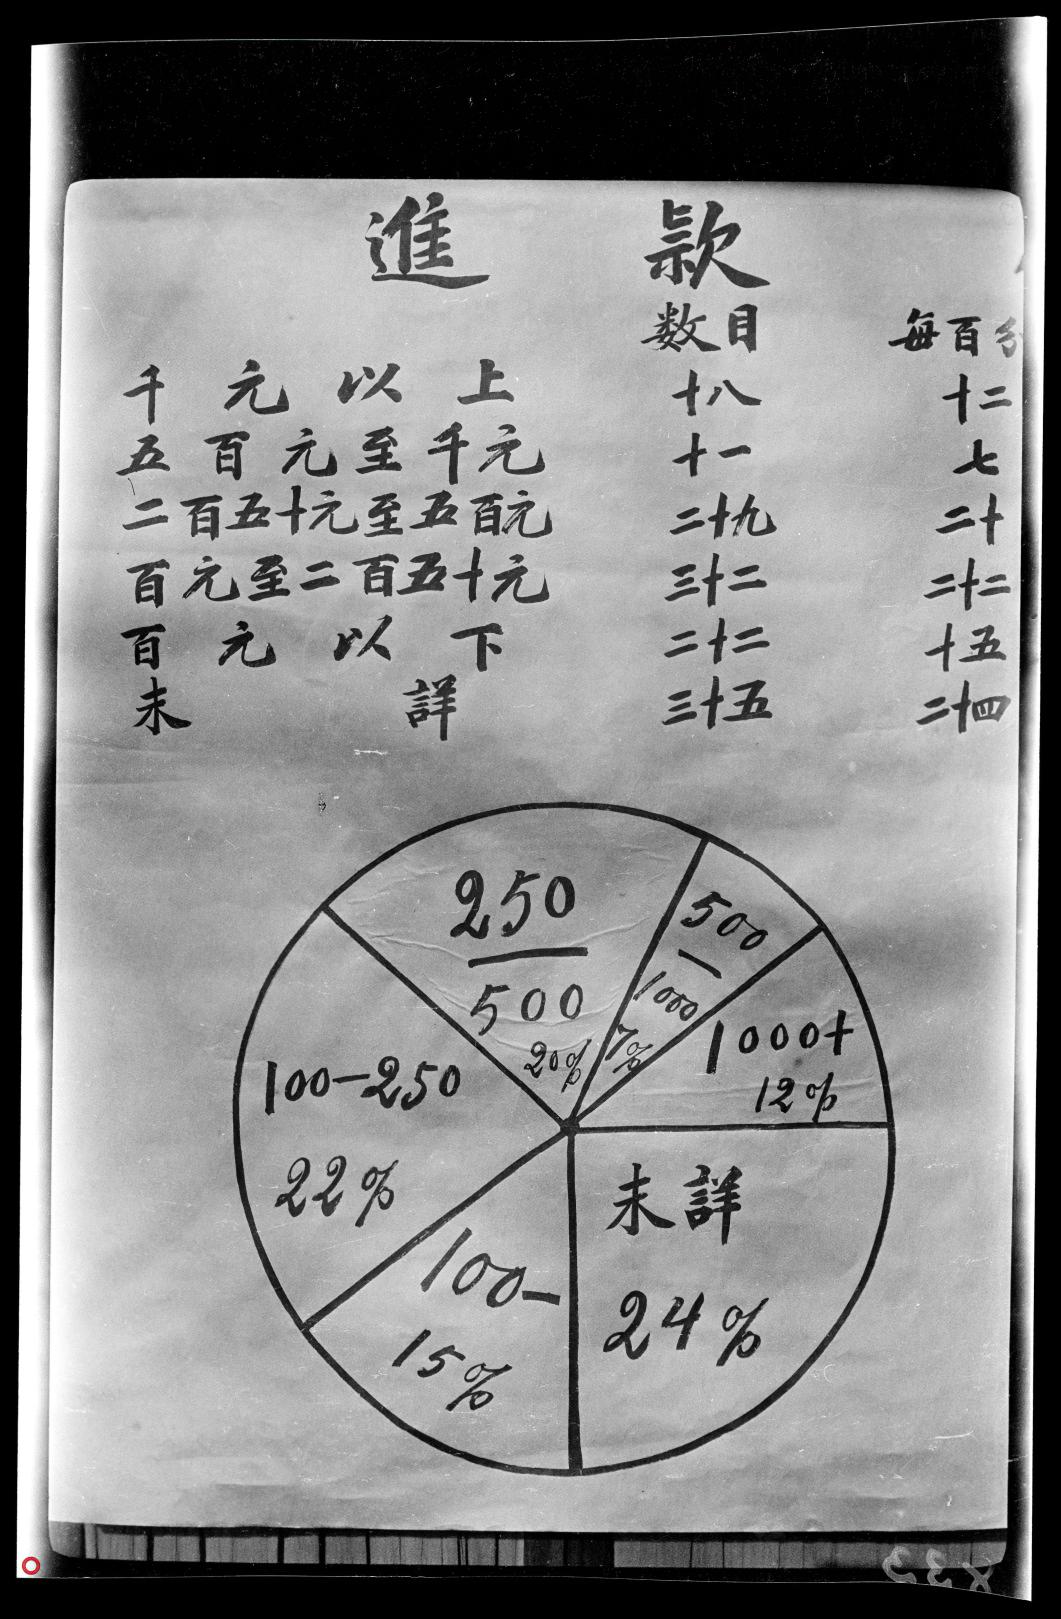 進款
数目 每百分
千元以上 十八 十二
五百元至千元 十一 七
二百五十元至五百元 二十九 二十
百元至二百五十元 三十二 二十二
百元以下 二十二 十五
未詳 三十五 二十四
250
500
20%
500
1000
7%
1000+
12%
100-250
22%
100-
15%
未詳
24%